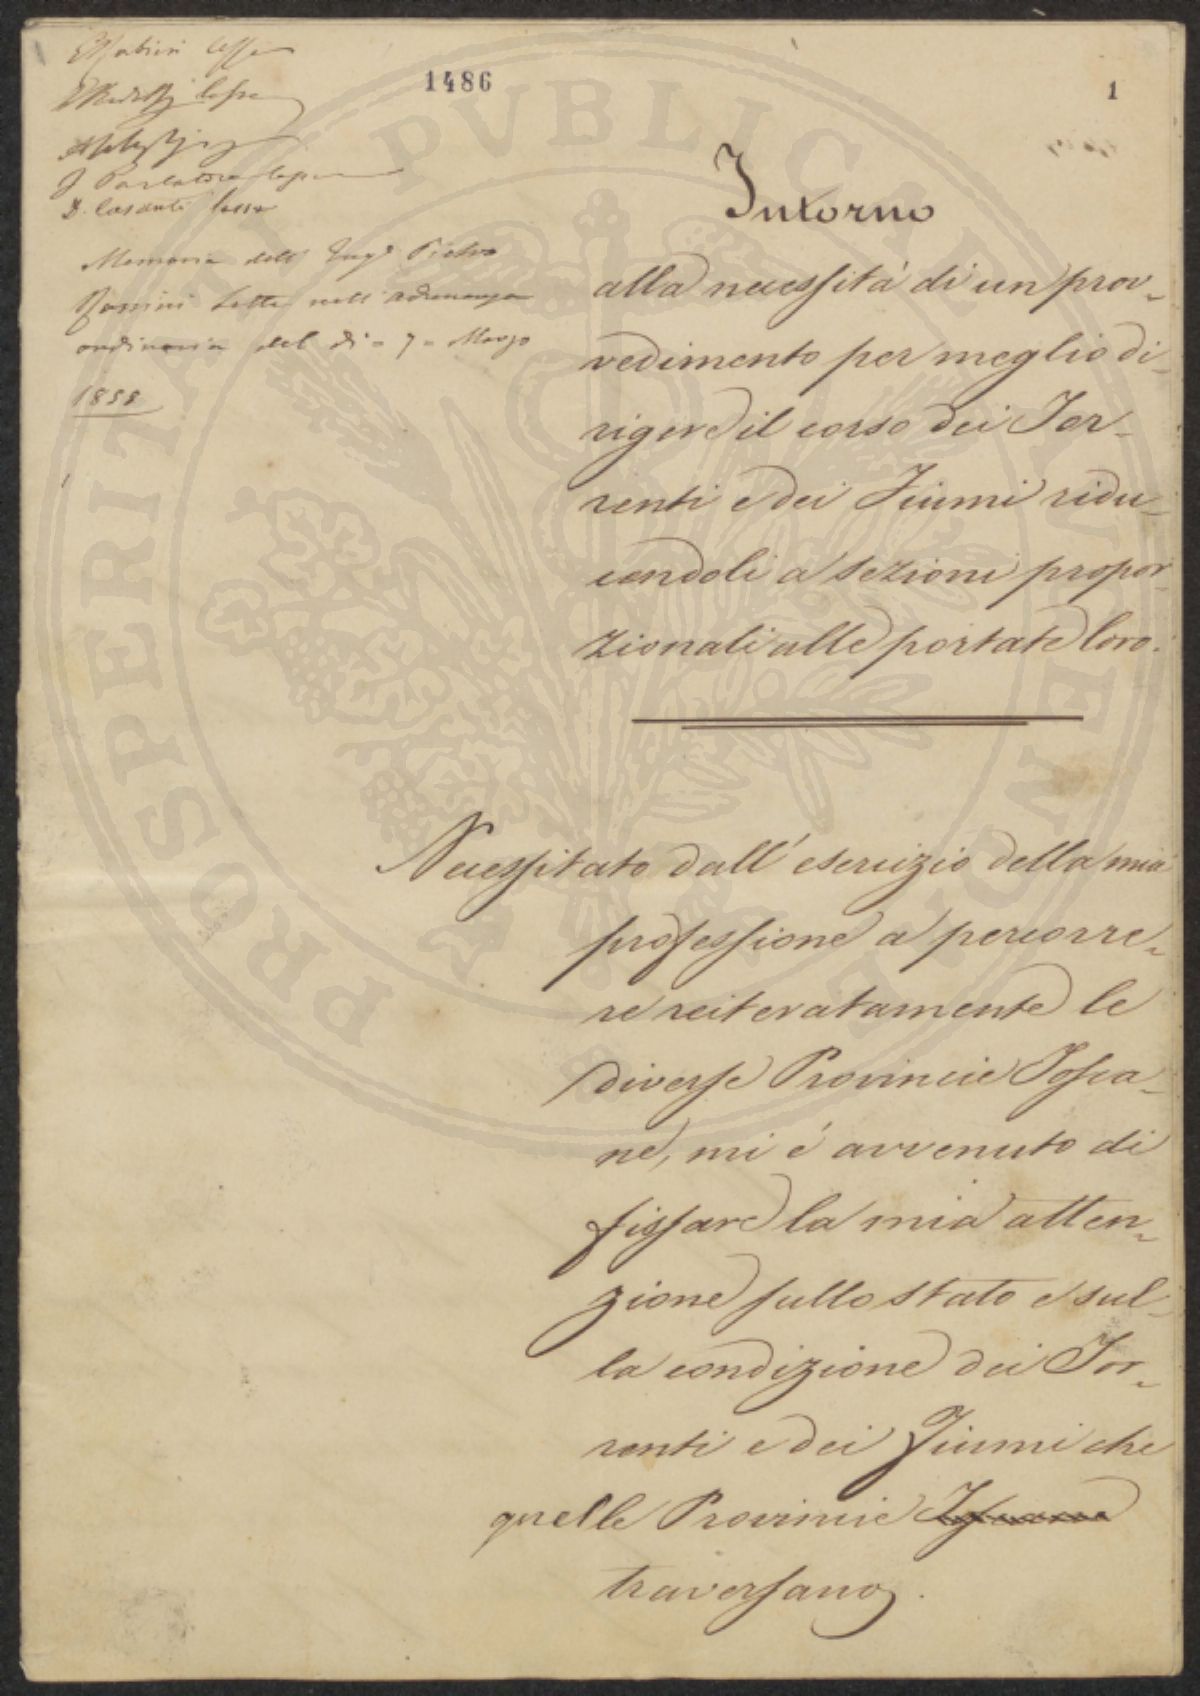 1486
1
lesse
D. Casanti lesse
Memoria dell' Ing.e Pietro
Rossini letta nell' adunanza
ordinaria del dì - 7 - Marzo
1858
Intorno
alla necessità di un prov-
vedimento per meglio di-
rigere il corso dei Tor-
renti e dei Fiumi ridu-
cendoli a sezioni propor-
zionali alle portate loro.
Necessitato dall' esercizio della mia
professione a percorre-
re reiteratamente le
diverse Provincie Tosca-
ne, mi è avvenuto di
fissare la mia atten-
zione sullo stato e sul-
la condizione dei Tor-
renti e dei Fiumi che
quelle Provincie
traversano.
PROSPERITATI PVBLICAE